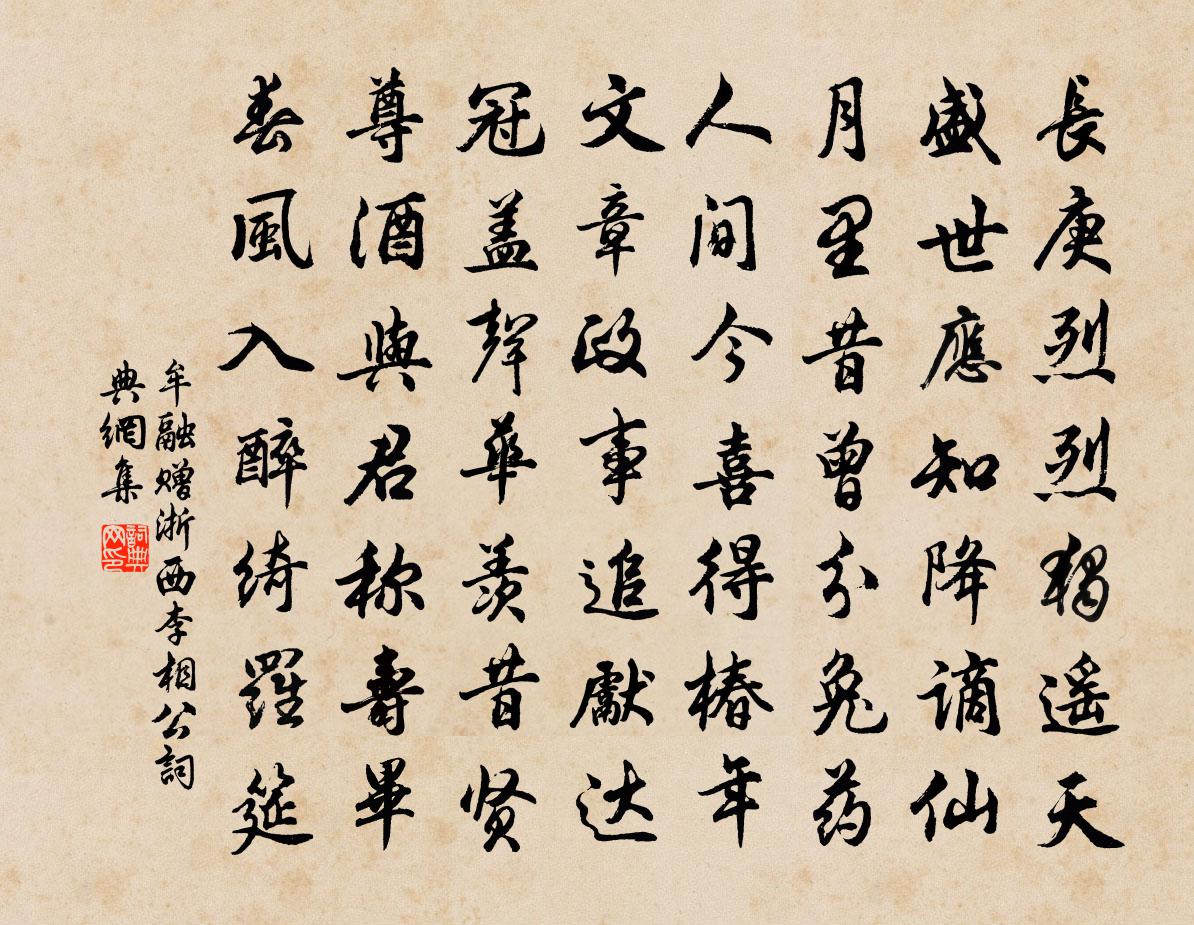 長庚烈烈獨遥天
盛世應知降謫仙
月里昔曾分兔药
人间今喜得椿年
文章政事追獻达
冠盖聲華羨昔贤
尊酒與君称壽畢
春風入醉绮羅筵
牟融赠浙西李相公詞
典網集
詞典网印